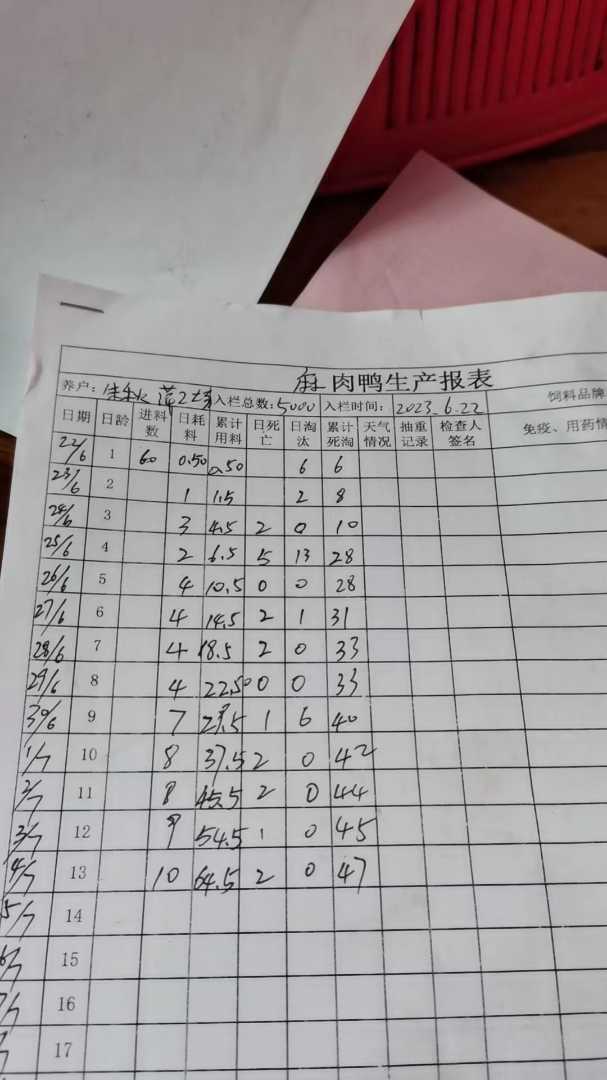 麻肉鸭生产报表
养户: 入栏总数:5000 入栏时间: 2023.6.22 饲料品牌
日期 日龄 进料数 日耗料 累计用料 日死亡 日淘汰 累计死淘 天气情况 抽重记录 检查人签名 免疫、用药情
22/6 1 60 0.50 0.50 6 6
23/6 2 1 1.5 2 8
24/6 3 3 4.5 2 0 10
25/6 4 2 6.5 5 13 28
26/6 5 4 10.5 0 0 28
27/6 6 4 14.5 2 1 31
28/6 7 4 18.5 2 0 33
29/6 8 4 22.50 0 0 33
30/6 9 7 29.5 1 6 40
1/7 10 8 37.5 2 0 42
2/7 11 8 45.5 2 0 44
3/7 12 9 54.5 1 0 45
4/7 13 10 64.5 2 0 47
5/7 14
6/7 15
16
17